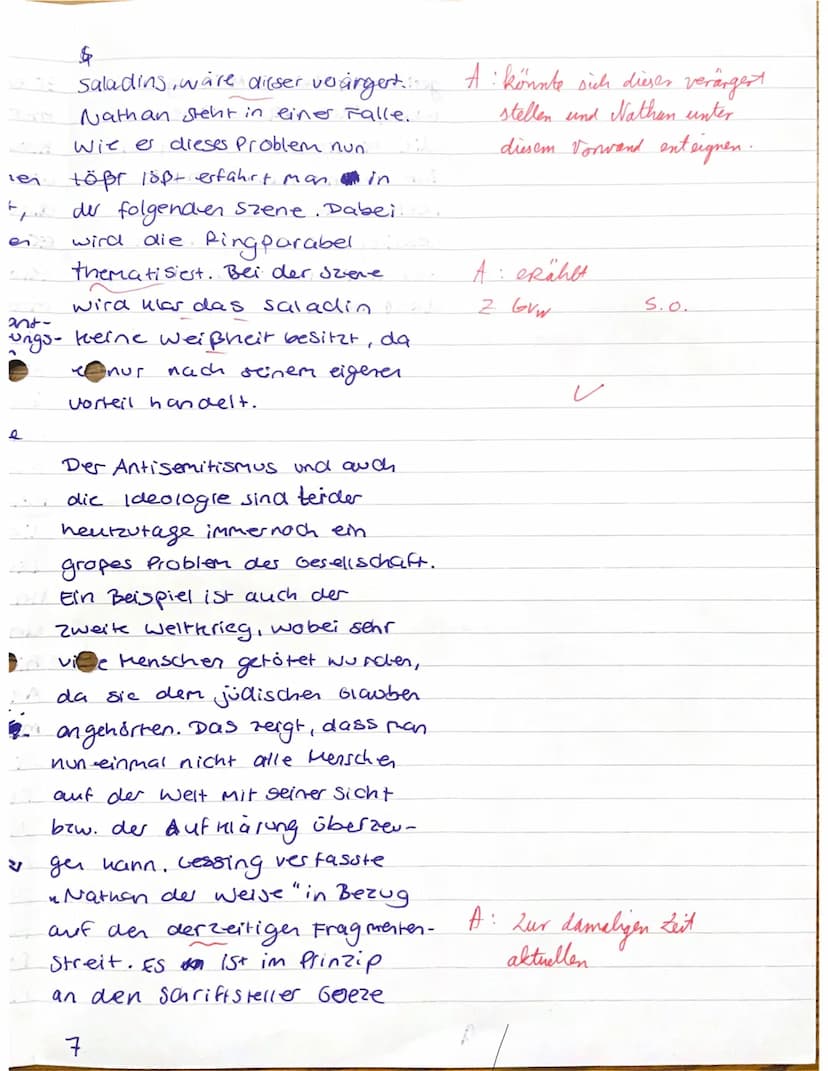 Saladins, wäre dieser verärgert.
A: könnte sich dieser verärgert
Nathan steht in einer Falle.
stellen und Nathan unter
Wie er dieses Problem nun
diesem Vorwand enteignen.
tößt lößt erfährt man in
der folgenden Szene. Dabei
wird die Ringparabel
thematisiert. Bei der Szene
A: erzählt
wird klar das Saladin
Z Gr
s.o.
keine Weißheit besitzt, da
er nur nach seinem eigenen
Vorteil handelt.
✓
Der Antisemitismus und auch
die Ideologie sind leider
heutzutage immernoch ein
großes Problem der Gesellschaft.
Ein Beispiel ist auch der
zweite Weltkrieg, wobei sehr
viele Menschen getötet wurden,
da sie dem jüdischen Glauben
angehörten. Das zeigt, dass man
nun einmal nicht alle Menschen
auf der Welt mit seiner Sicht
bzw. der Aufklärung überzeu-
gen kann. Lessing verfasste
„Nathan der Weise" in Bezug
auf den derzeitigen Fragmenten-
A: Zur damaligen Zeit
streit. Es ist im Prinzip
aktuellen
an den Schriftsteller Goeze
7